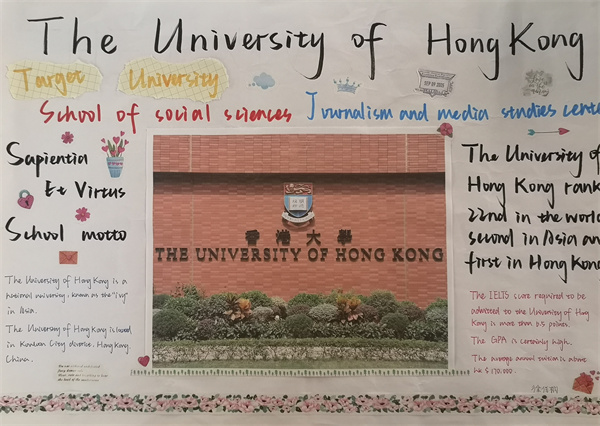 The University of Hong Kong
Target University
School of social sciences Journalism and media studies cent
SEP 09 2020
Sapientia
Et Virtus
School motto
The University of Hong Kong is a
national university, known as the "ivy"
in Asia.
The University of Hong Kong is located
in Kowloon City district, Hong Kong
China.
香港大學
THE UNIVERSITY OF HONG KONG
The University of
Hong Kong rank
22nd in the world
second in Asia an
first in Hong Kong
The IELTS score required to be
admitted to the University of Hong
Kong is more than 6.5 points.
The GPA is certainly high.
The average annual tuition is above
HK $ 170,000.